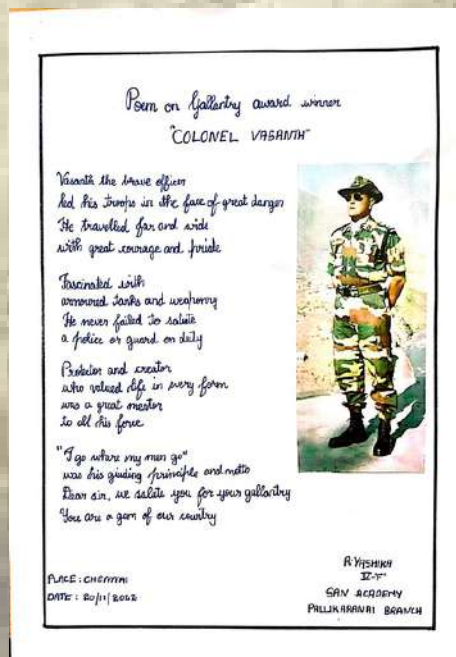 Poem on Gallantry award winner
"COLONEL VASANTH"
Vasanth the brave officer
led his troops in the face of great danger
He travelled far and wide
with great courage and pride
Fascinated with
armoured tanks and weaponry
He never failed to salute
a police or guard on duty
Protector and creator
who valued life in every form
was a great mentor
to all his force
"I go where my men go"
was his guiding principle and motto
Dear sir, we salute you for your gallantry
You are a gem of our country
PLACE : CHENNAI
DATE : 20/11/2022
R. YASHIKA
IV-F
SAN ACADEMY
PALLIKARANAI BRANCH